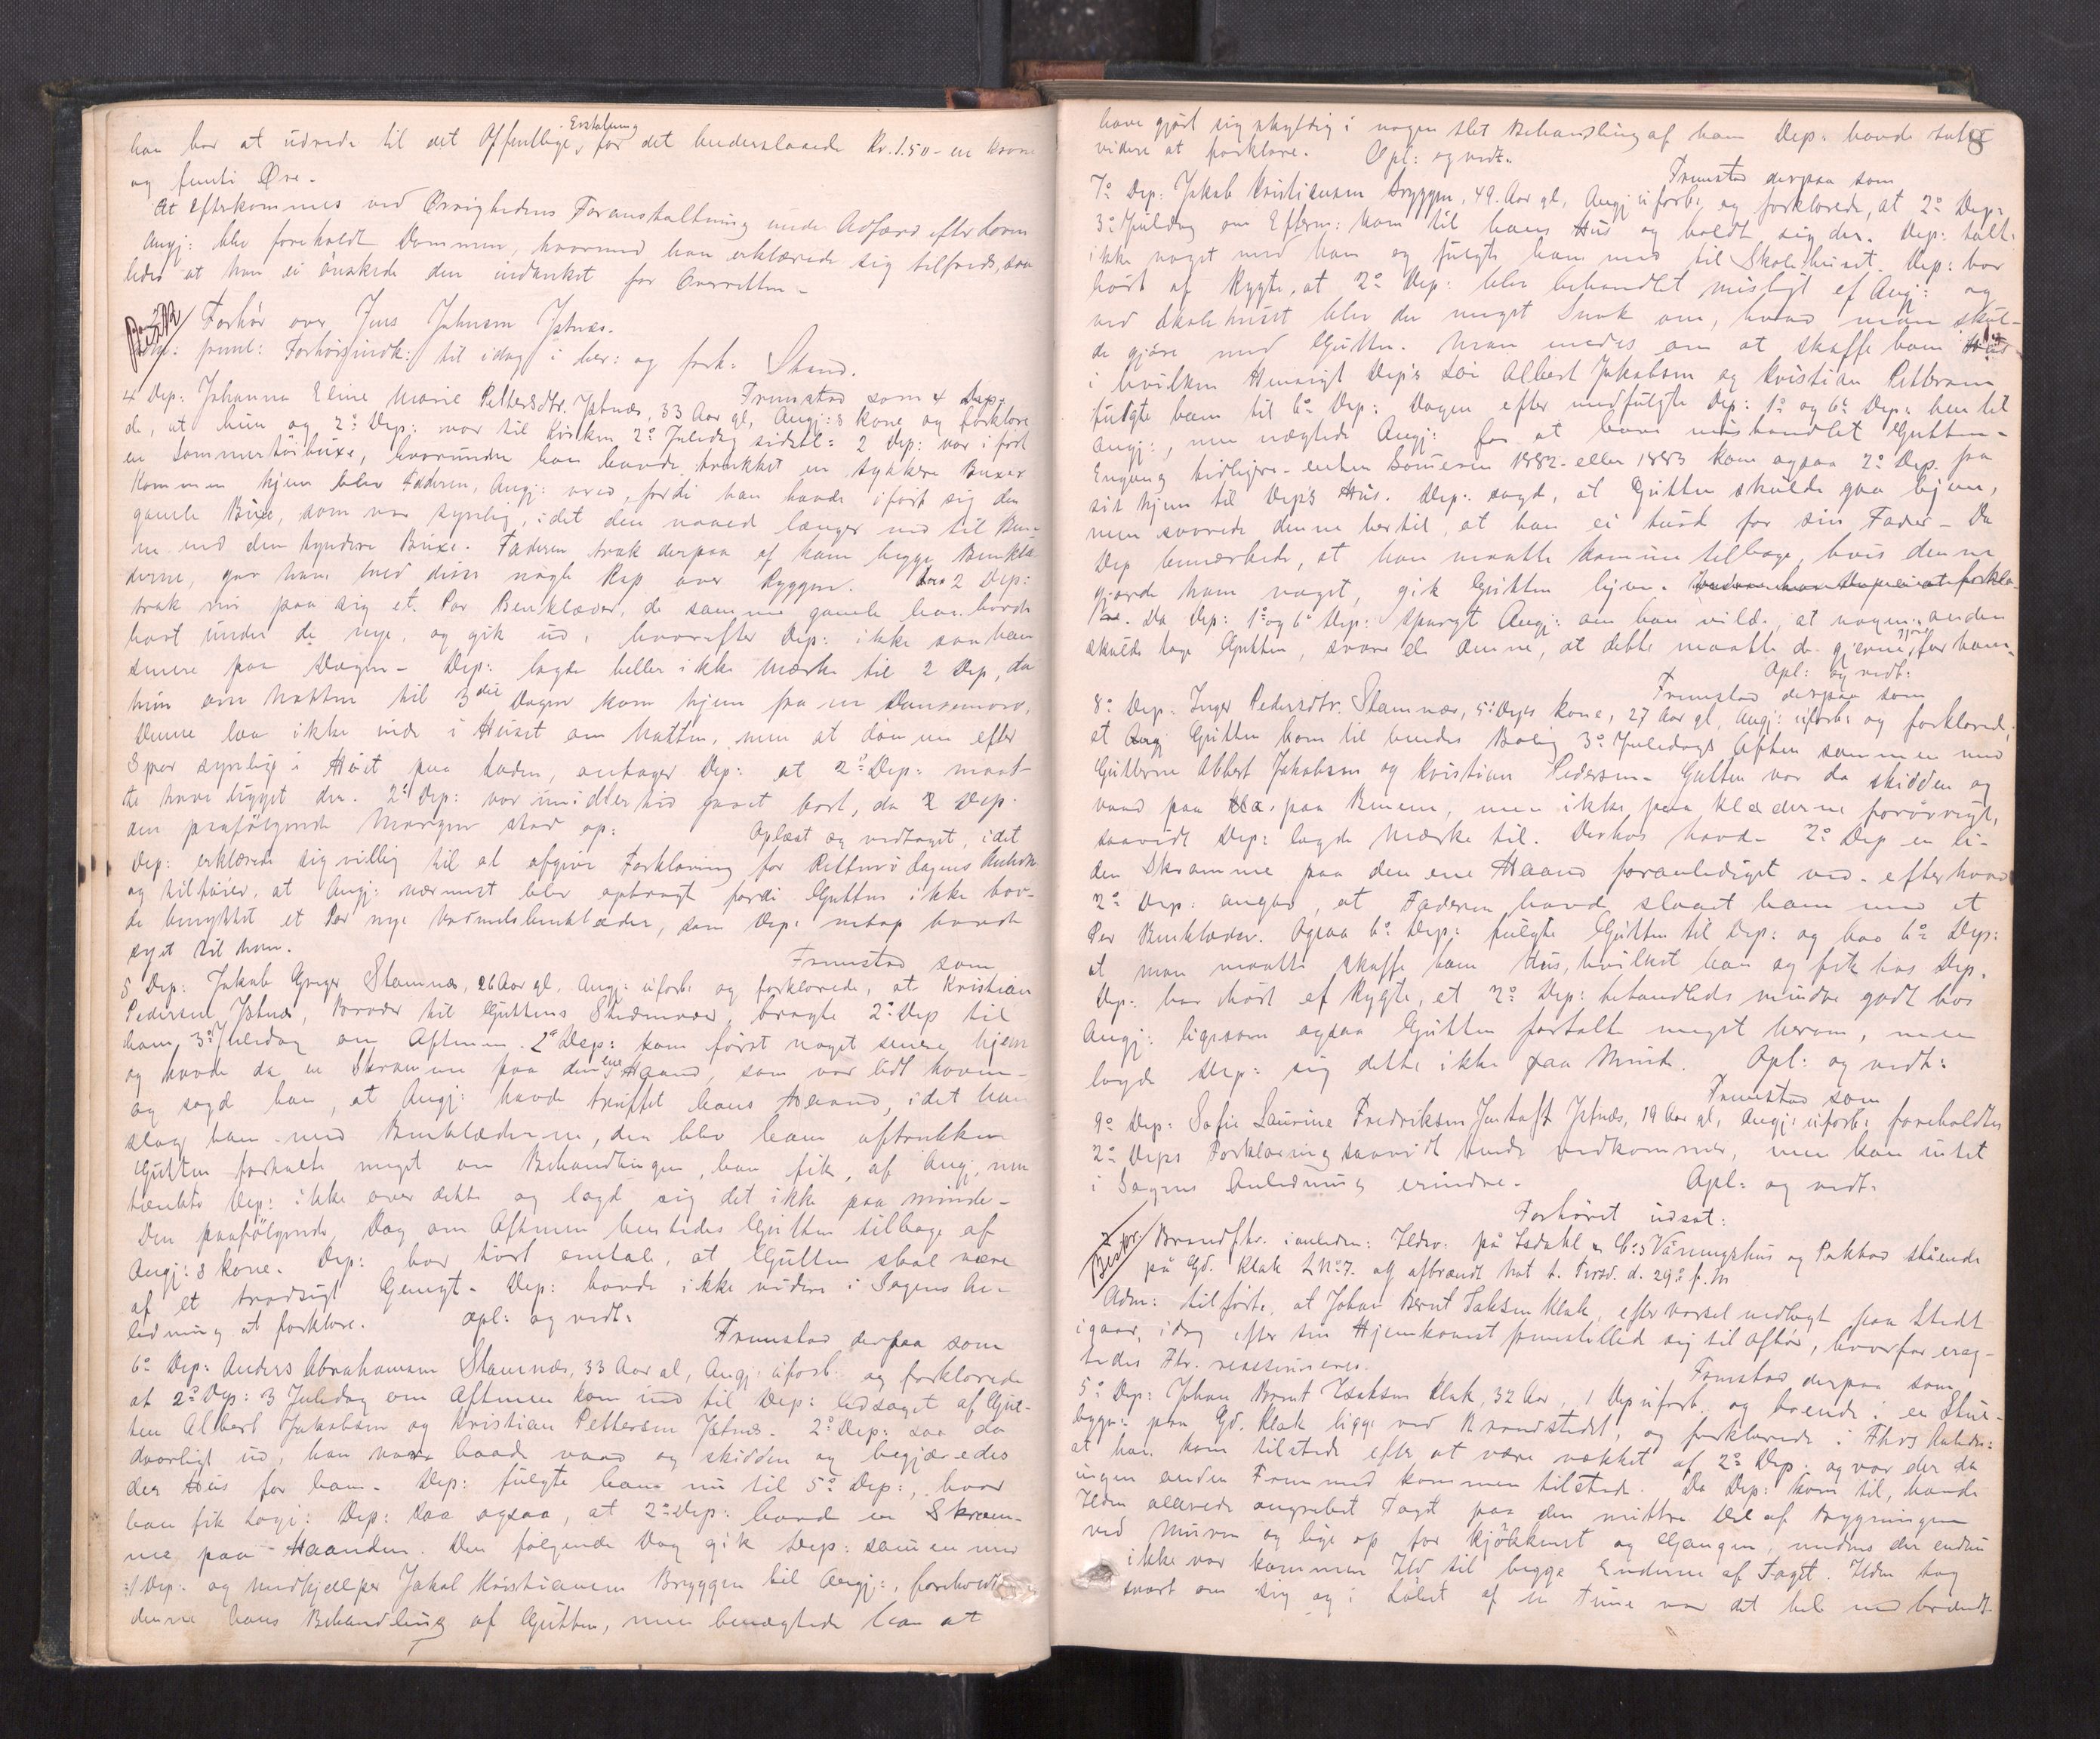 han har at udrede til det Offentlige Erstatning for det underslaaede Kr. 1.50 - en krone
og femti Øre.
At efterkommes ved Øvrighedens Foranstaltning under Adfærd efter Loven
Angj: blev foreholdt Dommen, hvormed han erklærede sig tilfreds, saa
ledes at han ei ønskede den indanket for Overretten -
Forhør over Jens Johnsen Jstnæs.
prml: Forhørsindk: til idag i her: og forh: Stand.
Fremstod som 4 Dep:
4 Dep: Johanna Eline Marie Pettersdtr. Jstnæs, 33 Aar gl, Angj:s kone og forklare
de, at hun og 2: Dep: var til Kirken 2: Juledag sidstl: 2 Dep: var iført
en Sommertøibuxe, hvorunder han havde trukket en tykkere Buxer
Kommen hjem blev Faderen, Angj: vred, fordi han havde iført sig den
gamle Buxe, som var synlig, idet den naaed længer ned til Bene
ne end den tyndere Buxe. Faderen trak derpaa af ham begge Benklæ
derne, gav ham med disse nogle Rap over Ryggen. 2 Dep:
trak nu paa sig et Par Benklæder, de samme gamle han havde
havt under de nye, og gik ud, hvorefter Dep: ikke saa ham
senere paa Dagen - Dep: lagde heller ikke Mærke til 2 Dep, da
hun om Natten til 3die Dagen kom hjem fra en Dansemoro.
Denne laa ikke inde i Huset om Natten, men at dømme efter
Spor synlige i Høiet paa Laden, antager Dep: at 2: Dep: maat
te have ligget der. 2: Dep: var imidlertid gaaet bort, da 2 Dep.
om paafølgende Morgen stod op: Oplæst og vedtaget, idet
Dep: erklærede sig villig til at afgive Forklaring for Retten i dagens Anledn
og tilføier, at Angj: nærmest blev opbragt fordi Gutten ikke hav-
de benyttet et Par nye Vadmelsbenklæder, som Dep: netop havde
syet til ham.
Fremstod som
5 Dep: Jakob Greger Stamnæs, 26 Aar gl. Angj: uforb: og forklarede, at Kristian
Pedersen Jstnæs, Broder til Guttens Stedmoder, bragte 2: Dep til
ham 3: Juledag om Aftenen. 2: Dep: kom først noget senere hjem
og havde da en Skramme paa den ene Haand, som var lidt hoven -
og sagde han, at Angj: havde truffet hans Haand, idet han
slog ham med Benklæderne, der blev ham aftrukken
Gutten fortalte meget om Behandlingen, han fik, af Angj, men
tænkte Dep: ikke over dette og lagde sig det ikke paa minde -
Den paafølgende Dag om Aftenen hentedes Gutten tilbage af
Angj:s kone. Dep: har hørt omtale, at Gutten skal være
af et trodsigt Gemyt - Dep: havde ikke videre i Sagens An-
ledning at forklare. opl: og vedt:
Fremstod derpaa som
6: Dep: Anders Abrahamsen Stamnæs, 33 Aar gl, Angj: uforb: og forklarede
at 2: Dep: 3 Juledag om Aftenen kom ind til Dep: ledsaget af Gut-
ten Albert Jakobsen og Kristian Pettersen Jstnes. 2: Dep: saa da
daarligt ud, han var baade vaad og skidden og begjæredes
der Hus for ham. Dep: fulgte ham nu til 5: Dep:, hvor
han fik Logi: Dep: saa ogsaa, at 2: Dep: havde en Skram-
me paa Haanden. Den følgende Dag gik Dep: sammen med
1 Dep: og Medhjelper Jakob Kristiansen Bryggen til Angj:, foreholdt
denne hans Behandling af Gutten, men benægtede han at
8
have gjort sig skyldig i nogen slet Behandling af ham Dep: havde intet
videre at forklare. Opl: og vedt:
Fremstod derpaa som
7: Dep: Jakob Kristiansen Bryggen, 49 Aar gl, Angj: uforb: og forklarede, at 2: Dep:
3: Juledag om Efterm: kom til hans Hus og holdt sig der. Dep: talte
ikke noget med ham og fulgte ham ned til Skolehuset. Dep: har
hørt af Rygte, at 2: Dep: blev behandlet misligt af Angj: og
ved Skolehuset blev der meget Snak om, hvad man skul-
de gjøre med Gutten. Man enedes om at skaffe ham Hus
i hvilken Hensigt Dep's Søn Albert Jakobsen og Kristian Pettersen
fulgte ham til 6: Dep: Dagen efter medfulgte Dep: 1: og 6: Dep: hen til
Angj:, men nægtede Angj: for at have mishandlet Gutten -
Engang tidligere - enten Sommeren 1882 - eller 1883 kom ogsaa 2: Dep. fra
sit hjem til Dep's Hus. Dep: sagde, at Gutten skulde gaa hjem,
men svarede denne hertil, at han ei turde for sin Fader - Da
Dep bemærkede, at han maatte komme tilbage, hvis denne
gjorde ham noget, gik Gutten hjem.
Da Dep: 1: og 6: Dep: spurgte Angj: om han vilde, at nogen anden
skulde tage Gutten, svarede denne, at dette maatte de gjerne gjøre for ham.
Opl: og vedt:
Fremstod derpaa som
8: Dep: Inger Pedersdtr. Stamnæs, 5: Dep's kone, 27 Aar gl, Angj: uforb: og forklarede,
at Gutten kom til hendes Bolig 3: Juledags Aften sammen med
Gutterne Albert Jakobsen og Kristian Pedersen. Gutten var da skidden og
vaad paa Benene, men ikke paa klæderne forøvrigt,
saavidt Dep: lagde Mærke til. Derhos havde 2: Dep en li-
den Skramme paa den ene Haand foranlediget ved - efter hvad
2: Dep: angav, at Faderen havde slaaet ham med et
Par Benklæder. Ogsaa 6: Dep: fulgte Gutten til Dep: og bad 6: Dep:
at man maatte skaffe ham Hus, hvilket han og fik hos Dep.
Dep: har hørt af Rygte, at 2: Dep: behandledes mindre godt hos
Angj: ligesom ogsaa Gutten fortalte meget herom, men
lagde Dep: sig dette ikke paa Minde. Opl: og vedt:
Fremstod som
9: Dep: Sofie Laurine Fredriksen Jstnæs, 19 Aar gl, Angj: uforb: foreholdtes
2: Deps Forklaring saavidt hende vedkommer, men kan intet
i Sagens Anledning erindre. Opl: og vedt:
Forhøret udsat:
Brandfhr. i anledn: Ildsv: på Isdahl & Co:s Våningshus og Pakbod stående
på Gd. Klak L No 7. afbrændt Nat t. Tirsd. d. 29: f.M
Adm: tilførte, at Johan Bernt Isaksen Klak, efter varsel nedlagt paa Stedet
igaar, idag efter sin Hjemkomst fremstillede sig til afhør, hvorfor erag-
tedes Fhr. reassumeres.
Fremstod derpaa som
5: Dep: Johan Bernt Isaksen Klak, 32 Aar, 1 Dep uforb. og boende i en Stue-
bygn: paa Gd. Klak ligge ved Brandstedet, og forklarede i Fhrs Anledn:
at han kom tilstede efter at være vækket af 2: Dep: og var der da
ingen anden Fremmed kommen tilstede. Da Dep: kom til, havde
Ilden allerede angrebet Taget paa den midtre Del af Bygningen
ved Muren og lige op for kjøkkenet og Gangen, medens der endnu
ikke var kommen Ild til begge Enderne af Taget. Ilden tog
snart om sig og i Løbet af en Time var det hele nedbrændt